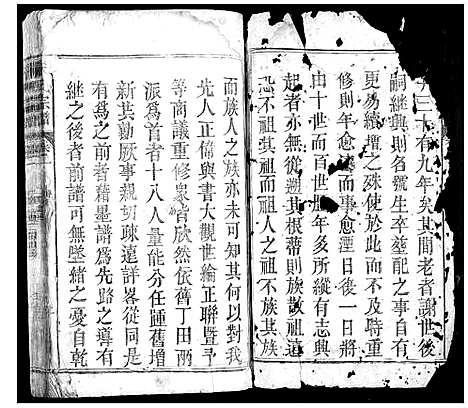 三十有九年矣其間老者謝世後
嗣繼興則各號生卒塟配之事自有
更易續增之殊使於此而不及時重
修則年愈湮日後一日將
由十世而百世年多所縱有志興
起者亦無從遡其根蒂則族散祖遠
恐不祖其祖人之祖不族其族
而族人之族亦未可知其何以對我
先人正偹與書大觀世綸正聯暨予
等商議重修衆皆欣然依舊丁田兩
派為首者十八人量能分任匯舊增
新其勷厥事親切疎遠詳畧從同是
有為之前者藉墨譜為先路之導有
繼之後者前譜可無墜緒之憂自乾